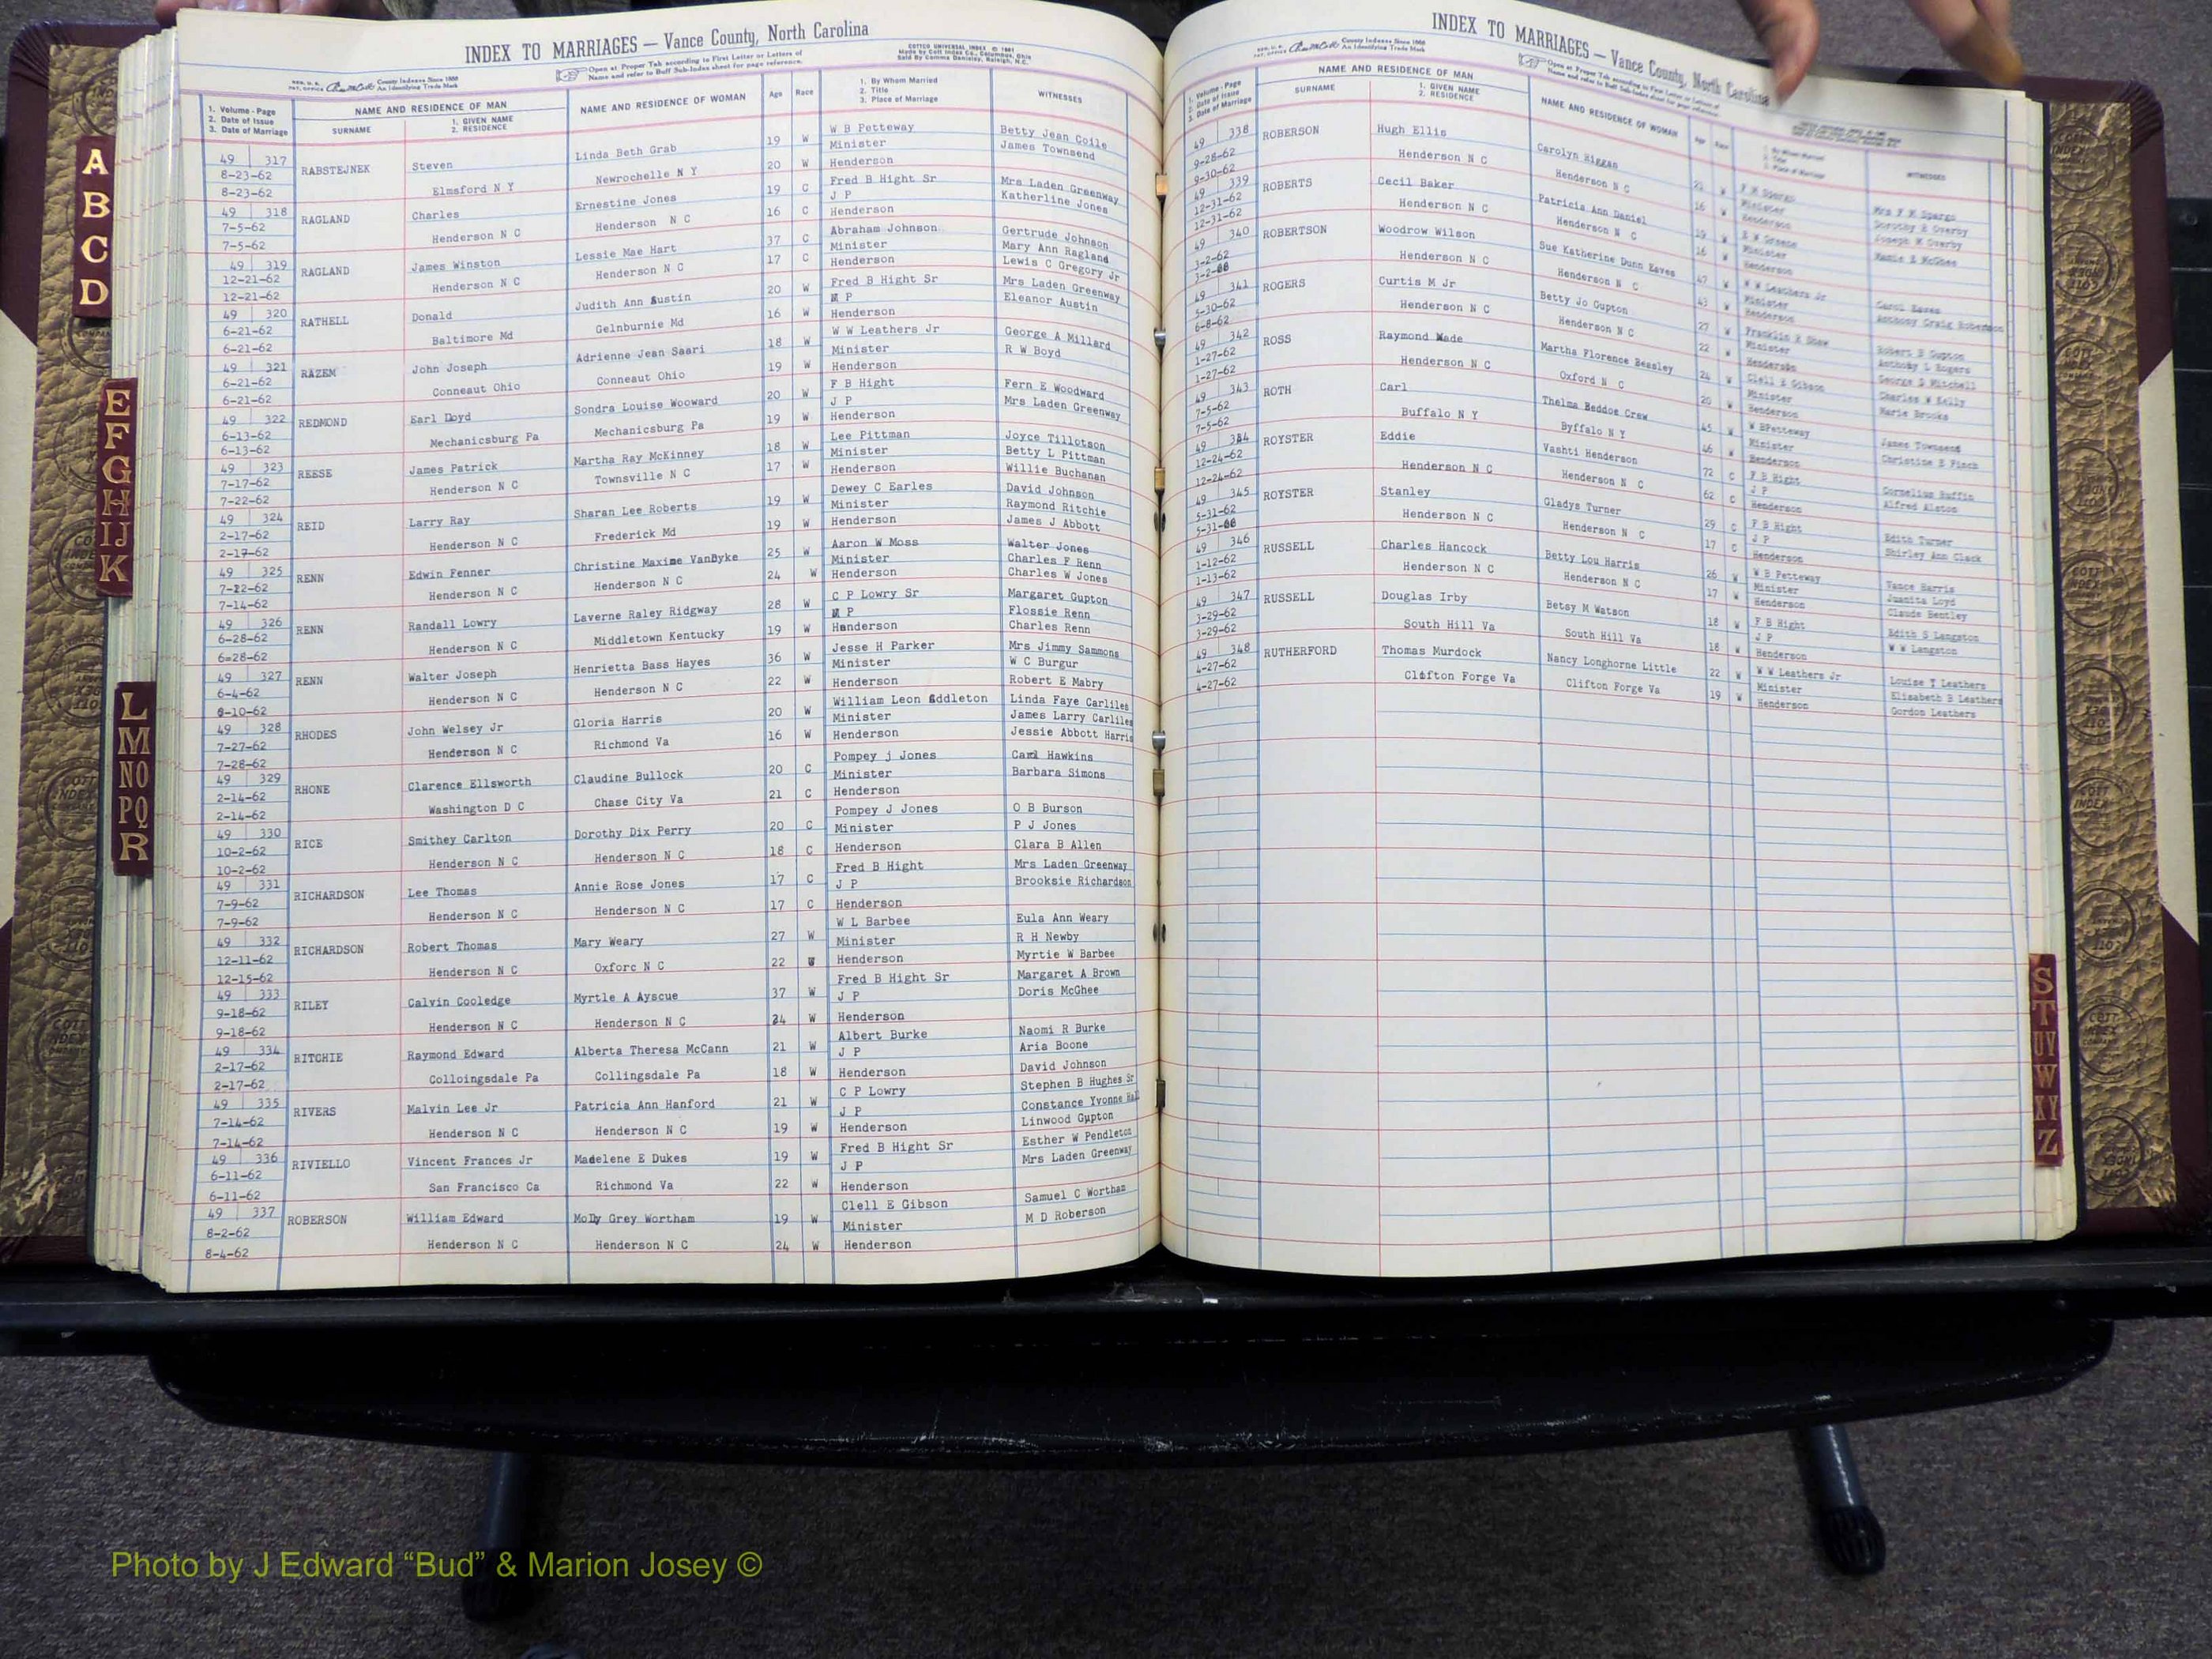 INDEX TO MARRIAGES — Vance County, North Carolina
1. Volume - Page 2. Date of Issue 3. Date of Marriage
NAME AND RESIDENCE OF MAN
SURNAME 1. GIVEN NAME 2. RESIDENCE
NAME AND RESIDENCE OF WOMAN
Age Race
1. By Whom Married 2. Title 3. Place of Marriage
WITNESSES
49 317 RABSTEJNEK Steven Linda Beth Grab 19 W W B Petteway Betty Jean Coile
8-23-62 Elmsford N Y Newrochelle N Y 20 W Minister James Townsend
8-23-62 Henderson
49 318 RAGLAND Charles Ernestine Jones 19 C Fred B Hight Sr Mrs Laden Greenway
7-5-62 Henderson N C Henderson N C 16 C J P Katherline Jones
7-5-62 Henderson
49 319 RAGLAND James Winston Lessie Mae Hart 37 C Abraham Johnson Gertrude Johnson
12-21-62 Henderson N C Henderson N C 17 C Minister Mary Ann Ragland
12-21-62 Henderson Lewis C Gregory Jr
49 320 RATHELL Donald Judith Ann Austin 20 W Fred B Hight Sr Mrs Laden Greenway
6-21-62 Baltimore Md Gelnburnie Md 16 W P Eleanor Austin
6-21-62 Henderson
49 321 RAZEM John Joseph Adrienne Jean Saari 18 W W W Leathers Jr George A Millard
6-21-62 Conneaut Ohio Conneaut Ohio 19 W Minister R W Boyd
6-21-62 Henderson
49 322 REDMOND Earl Loyd Sondra Louise Wooward 20 W F B Hight Fern E Woodward
6-13-62 Mechanicsburg Pa Mechanicsburg Pa 19 W J P Mrs Laden Greenway
6-13-62 Henderson
49 323 REESE James Patrick Martha Ray McKinney 18 W Lee Pittman Joyce Tillotson
7-17-62 Henderson N C Townsville N C 17 W Minister Betty L Pittman
7-22-62 Henderson Willie Buchanan
49 324 REID Larry Ray Sharan Lee Roberts 19 W Dewey C Earles David Johnson
2-17-62 Henderson N C Frederick Md 19 W Minister Raymond Ritchie
2-17-62 Henderson James J Abbott
49 325 RENN Edwin Fenner Christine Maxine VanDyke 25 W Aaron W Moss Walter Jones
7-12-62 Henderson N C Henderson N C 24 W Minister Charles F Renn
7-14-62 Henderson Charles W Jones
49 326 RENN Randall Lowry Laverne Raley Ridgway 28 W C P Lowry Sr Margaret Gupton
6-28-62 Henderson N C Middletown Kentucky 19 W P Flossie Renn
6=28-62 Henderson Charles Renn
49 327 RENN Walter Joseph Henrietta Bass Hayes 36 W Jesse H Parker Mrs Jimmy Sammons
6-4-62 Henderson N C Henderson N C 22 W Minister W C Burgur
6-10-62 Henderson Robert E Mabry
49 328 RHODES John Welsey Jr Gloria Harris 20 W William Leon Addleton Linda Faye Carliles
7-27-62 Henderson N C Richmond Va 16 W Minister James Larry Carliles
7-28-62 Henderson Jessie Abbott Harris
49 329 RHONE Clarence Ellsworth Claudine Bullock 20 C Pompey j Jones Carl Hawkins
2-14-62 Washington D C Chase City Va 21 C Minister Barbara Simons
2-14-62 Henderson
49 330 RICE Smithey Carlton Dorothy Dix Perry 20 C Pompey J Jones O B Burson
10-2-62 Henderson N C Henderson N C 18 C Minister P J Jones
10-2-62 Henderson Clara B Allen
49 331 RICHARDSON Lee Thomas Annie Rose Jones 17 C Fred B Hight Mrs Laden Greenway
7-9-62 Henderson N C Henderson N C 17 C J P Brooksie Richardson
7-9-62 Henderson
49 332 RICHARDSON Robert Thomas Mary Weary 27 W W L Barbee Eula Ann Weary
12-11-62 Henderson N C Oxforc N C 22 W Minister R H Newby
12-15-62 Henderson Myrtie W Barbee
49 333 RILEY Calvin Cooledge Myrtle A Ayscue 37 W Fred B Hight Sr Margaret A Brown
9-18-62 Henderson N C Henderson N C 24 W J P Doris McGhee
9-18-62 Henderson
49 334 RITCHIE Raymond Edward Alberta Theresa McCann 21 W Albert Burke Naomi R Burke
2-17-62 Colloingsdale Pa Collingsdale Pa 18 W J P Aria Boone
2-17-62 Henderson David Johnson
49 335 RIVERS Malvin Lee Jr Patricia Ann Hanford 21 W C P Lowry Stephen B Hughes Sr
7-14-62 Henderson N C Henderson N C 19 W J P Constance Yvonne
7-14-62 Henderson Linwood Gupton
49 336 RIVIELLO Vincent Frances Jr Madelene E Dukes 19 W Fred B Hight Sr Esther W Pendleton
6-11-62 San Francisco Ca Richmond Va 22 W J P Mrs Laden Greenway
6-11-62 Henderson
49 337 ROBERSON William Edward Molly Grey Wortham 19 W Clell E Gibson Samuel C Wortham
8-2-62 Henderson N C Henderson N C 24 W Minister M D Roberson
8-4-62 Henderson
INDEX TO MARRIAGES — Vance County, North Carolina
1. Volume - Page 2. Date of Issue 3. Date of Marriage
NAME AND RESIDENCE OF MAN
SURNAME 1. GIVEN NAME 2. RESIDENCE
NAME AND RESIDENCE OF WOMAN
WITNESSES
49 338 ROBERSON Hugh Ellis Carolyn Riggan
9-28-62 Henderson N C Henderson N C Minister
9-30-62 Henderson
49 339 ROBERTS Cecil Baker Patricia Ann Daniel 19 W
12-31-62 Henderson N C Henderson N C 16 W Minister
12-31-62 Henderson
49 340 ROBERTSON Woodrow Wilson Sue Katherine Dunn Eaves 47 W W W Leathers Jr Carol Eaves
3-2-62 Henderson N C Henderson N C 43 W Minister Anthony Craig Robertson
Henderson
49 341 ROGERS Curtis M Jr Betty Jo Gupton 27 W Franklin R Shaw Robert B Gupton
5-30-62 Henderson N C Henderson N C 22 W Minister Anthony L Rogers
6-8-62 Henderson George D Mitchell
49 342 ROSS Raymond Wade Martha Florence Beasley 24 W Clell E Gibson Charles W Kelly
1-27-62 Henderson N C Oxford N C 20 W Minister Marie Brooks
1-27-62 Henderson
49 343 ROTH Carl Thelma Beddoe Crew 45 W W BPetteway James Townsend
7-5-62 Buffalo N Y Byffalo N Y 46 W Minister Christine E Finch
7-5-62 Henderson
49 344 ROYSTER Eddie Vashti Henderson 72 C F B Hight Cornelius Ruffin
12-24-62 Henderson N C Henderson N C 62 C J P Alfred Alston
12-24-62 Henderson
49 345 ROYSTER Stanley Gladys Turner 29 C F B Hight Edith Turner
5-31-62 Henderson N C Henderson N C 17 C J P Shirley Ann Clack
Henderson
49 346 RUSSELL Charles Hancock Betty Lou Harris 26 W W B Petteway Vance Harris
1-12-62 Henderson N C Henderson N C 17 W Minister Juanita Loyd
1-13-62 Henderson Claude Bentley
49 347 RUSSELL Douglas Irby Betsy M Watson 18 W F B Hight Edith S Langston
3-29-62 South Hill Va South Hill Va 18 W J P W W Langston
3-29-62 Henderson
49 348 RUTHERFORD Thomas Murdock Nancy Longhorne Little 22 W W W Leathers Jr Louise T Leathers
4-27-62 Clifton Forge Va Clifton Forge Va 19 W Minister Elizabeth B Leathers
4-27-62 Henderson Gordon Leathers
A
B
C
D
E
F
G
H
IJ
K
L
M
NO
PQ
R
S
T
UV
W
XY
Z
Photo by J Edward “Bud” & Marion Josey ©